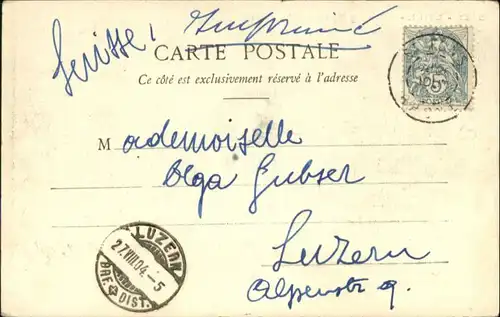 Suisse, Imprimé
CARTE POSTALE
Ce côté est exclusivement réservé à l'adresse
Mademoiselle
Olga Gubser
Luzern
Alpenstr 9.
LUZERN
27.VIII.04.-5
BRF. DIST.